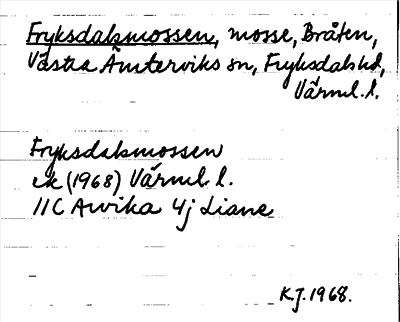 Fryksdalsmossen, mosse, Bråten,
Västra Ämterviks sn, Fryksdals hd,
Värml. l.
Fryksdalsmossen
ek (1968) Värml. l.
11C Arvika 4j Liane
K.J. 1968.